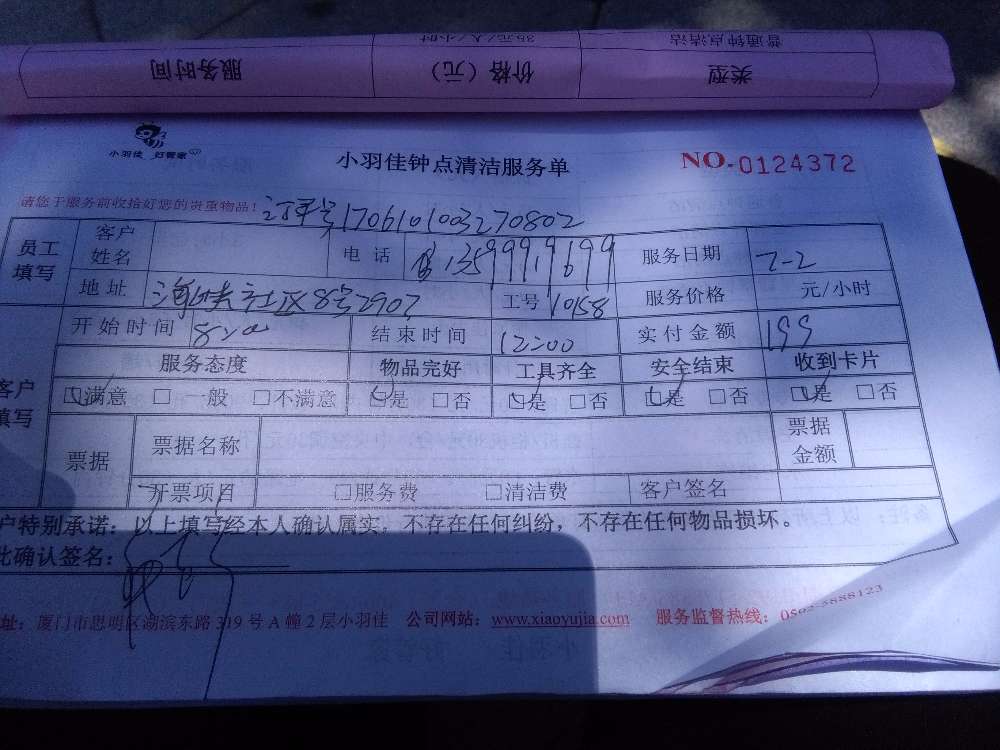 普通钟点清洁 39元/人/小时
类型 价格（元） 服务时间
小羽佳 好管家
小羽佳钟点清洁服务单
NO.0124372
请您于服务前收拾好您的贵重物品！
订单号1706101003270802
员工填写 客户姓名 电话 13599919699 服务日期 7-2
地址 海峡社区8号2907 工号 10158 服务价格 元/小时
开始时间 结束时间 12:00 实付金额 199
服务态度 物品完好 工具齐全 安全结束 收到卡片
客户填写 ☑满意 □一般 □不满意 ☑是 □否 ☑是 □否 ☑是 □否 ☑是 □否
票据 票据名称 票据金额
开票项目 □服务费 □清洁费 客户签名
户特别承诺：以上填写经本人确认属实，不存在任何纠纷，不存在任何物品损坏。
此确认签名：
址：厦门市思明区湖滨东路319号A幢2层小羽佳 公司网站：www.xiaoyujia.com 服务监督热线：0592-5888123